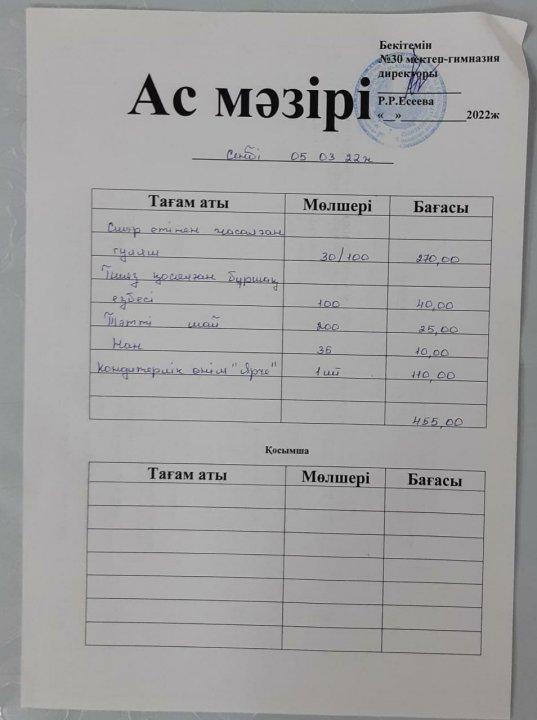 Бекітемін
№30 мектеп-гимназия
директоры
Р.Р.Есеева
«__»___________2022ж
Ас мәзірі
Сенбі 05 03 22ж
Тағам аты Мөлшері Бағасы
Сиыр етінен жасалған
гуляш 30/100 270,00
Піияз қосылған бұршақ
езбесі 100 40,00
Тәтті шай 200 25,00
Нан 35 10,00
Кондитерлік өнім "Ярче" 1 шт 110,00
455,00
Қосымша
Тағам аты Мөлшері Бағасы